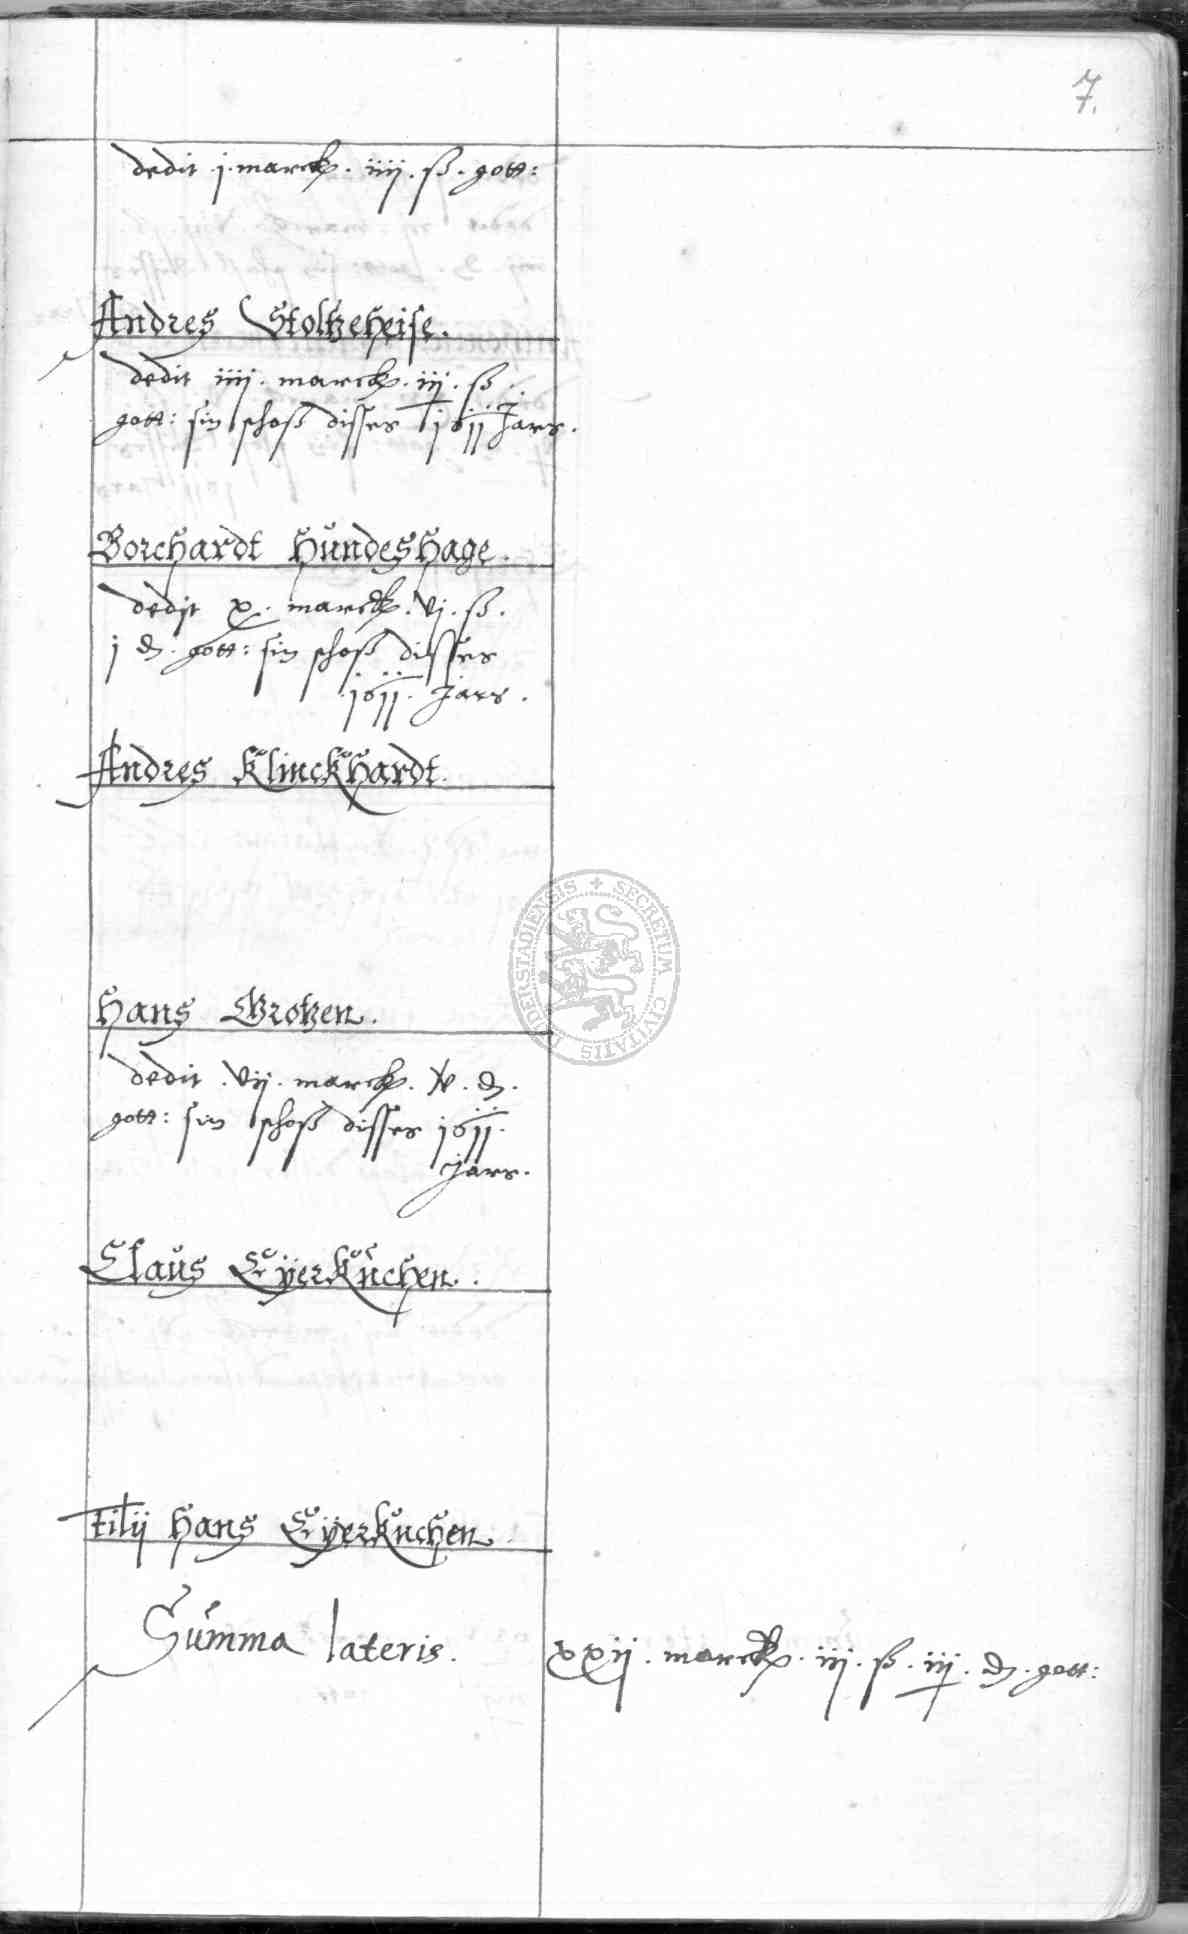 7.
dedit j marck. iiij. ß. gott:
Andres Stoltzeheise.
dedit iiij. marck. iij. ß.
gott: sin schoß disses 1611 Jars.
Borchardt Hundeshage.
dedit x. marck. vj. ß.
j d. gott: sin schoß disses
1611. Jars.
Andres Klinckhardt.
Hans Grotzen.
dedit. vij. marck. d.
gott: sin schoß disses 1611.
Jars.
Claus Eÿerkuchen.
filij Hans Eÿerkuchen
Summa lateris. xxij. marck. iij. ß. iij. d. gott:
SECRETUM CIVITATIS DUDERSTADIENSIS